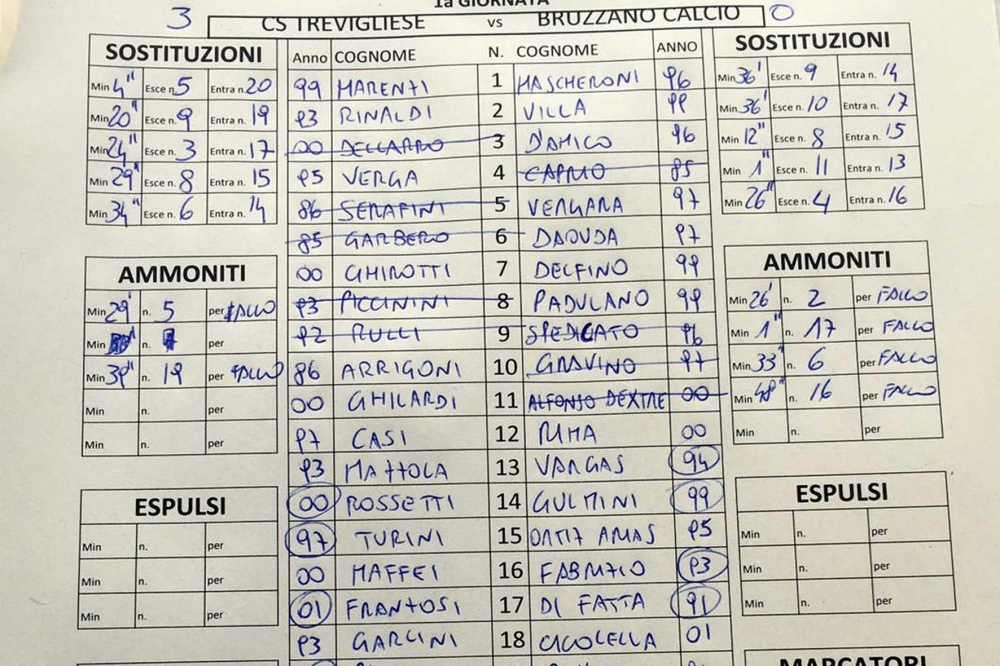 1a GIORNATA
3 CS TREVIGLIESE vs BRUZZANO CALCIO 0
SOSTITUZIONI
Min 4" Esce n. 5 Entra n. 20
Min 20" Esce n. 9 Entra n. 19
Min 24" Esce n. 3 Entra n. 17
Min 29" Esce n. 8 Entra n. 15
Min 34" Esce n. 6 Entra n. 14
AMMONITI
Min 29' n. 5 per FALLO
Min n. per
Min 39" n. 19 per FALLO
Min n. per
Min n. per
ESPULSI
Min n. per
Min n. per
Min n. per
Anno COGNOME N. COGNOME ANNO
99 MARENZI 1 MASCHERONI 96
93 RINALDI 2 VILLA 99
00 DELCARRO 3 D'AMICO 96
95 VERGA 4 CAPRIO 85
86 SERAFINI 5 VERGARA 97
85 GARBERO 6 DAOUDA 97
00 GHIROTTI 7 DELFINO 99
93 PICCININI 8 PADULANO 99
92 RULLI 9 SPEDICATO 96
86 ARRIGONI 10 GRAVINO 97
00 GHILARDI 11 ALFONSO DEXTRE 00
97 CASI 12 00
93 MATTOLA 13 VARGAS 94
00 ROSSETTI 14 GULMINI 99
97 TURINI 15 ORTIZ ARIAS 95
00 MAFFEI 16 FABRIZIO 93
01 FRANTOSI 17 DI FATTA 91
93 GARCINI 18 CICOLELLA 01
SOSTITUZIONI
Min 36' Esce n. 9 Entra n. 14
Min 36' Esce n. 10 Entra n. 17
Min 12" Esce n. 8 Entra n. 15
Min 1" Esce n. 11 Entra n. 13
Min 26" Esce n. 4 Entra n. 16
AMMONITI
Min 26' n. 2 per FALLO
Min 1" n. 17 per FALLO
Min 33" n. 6 per FALLO
Min 48" n. 16 per FALLO
Min n. per
ESPULSI
Min n. per
Min n. per
Min n. per
MARCATORI